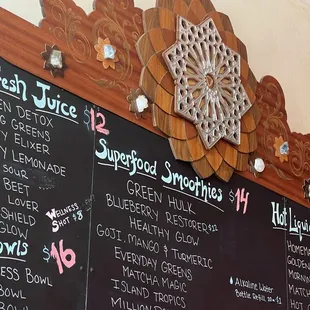 resh Juice $12
EN DETOX
NG GREENS
Y ELIXIR
Y LEMONADE
SOUR
BEET
LOVER
SHIELD
GLOW
WELLNESS
SHOT $8
owls $16
NESS BOWL
BOWL
BOWL
Superfood Smoothies $14
GREEN HULK
BLUEBERRY RESTORER
HEALTHY GLOW
GOJI, MANGO & TURMERIC
EVERYDAY GREENS
MATCHA MAGIC
ISLAND TROPICS
MILLION
Alkaline Water
Bottle Refill
Hot Liqui
HOMEMA
GOLDE
MORNIN
MATCH
HO